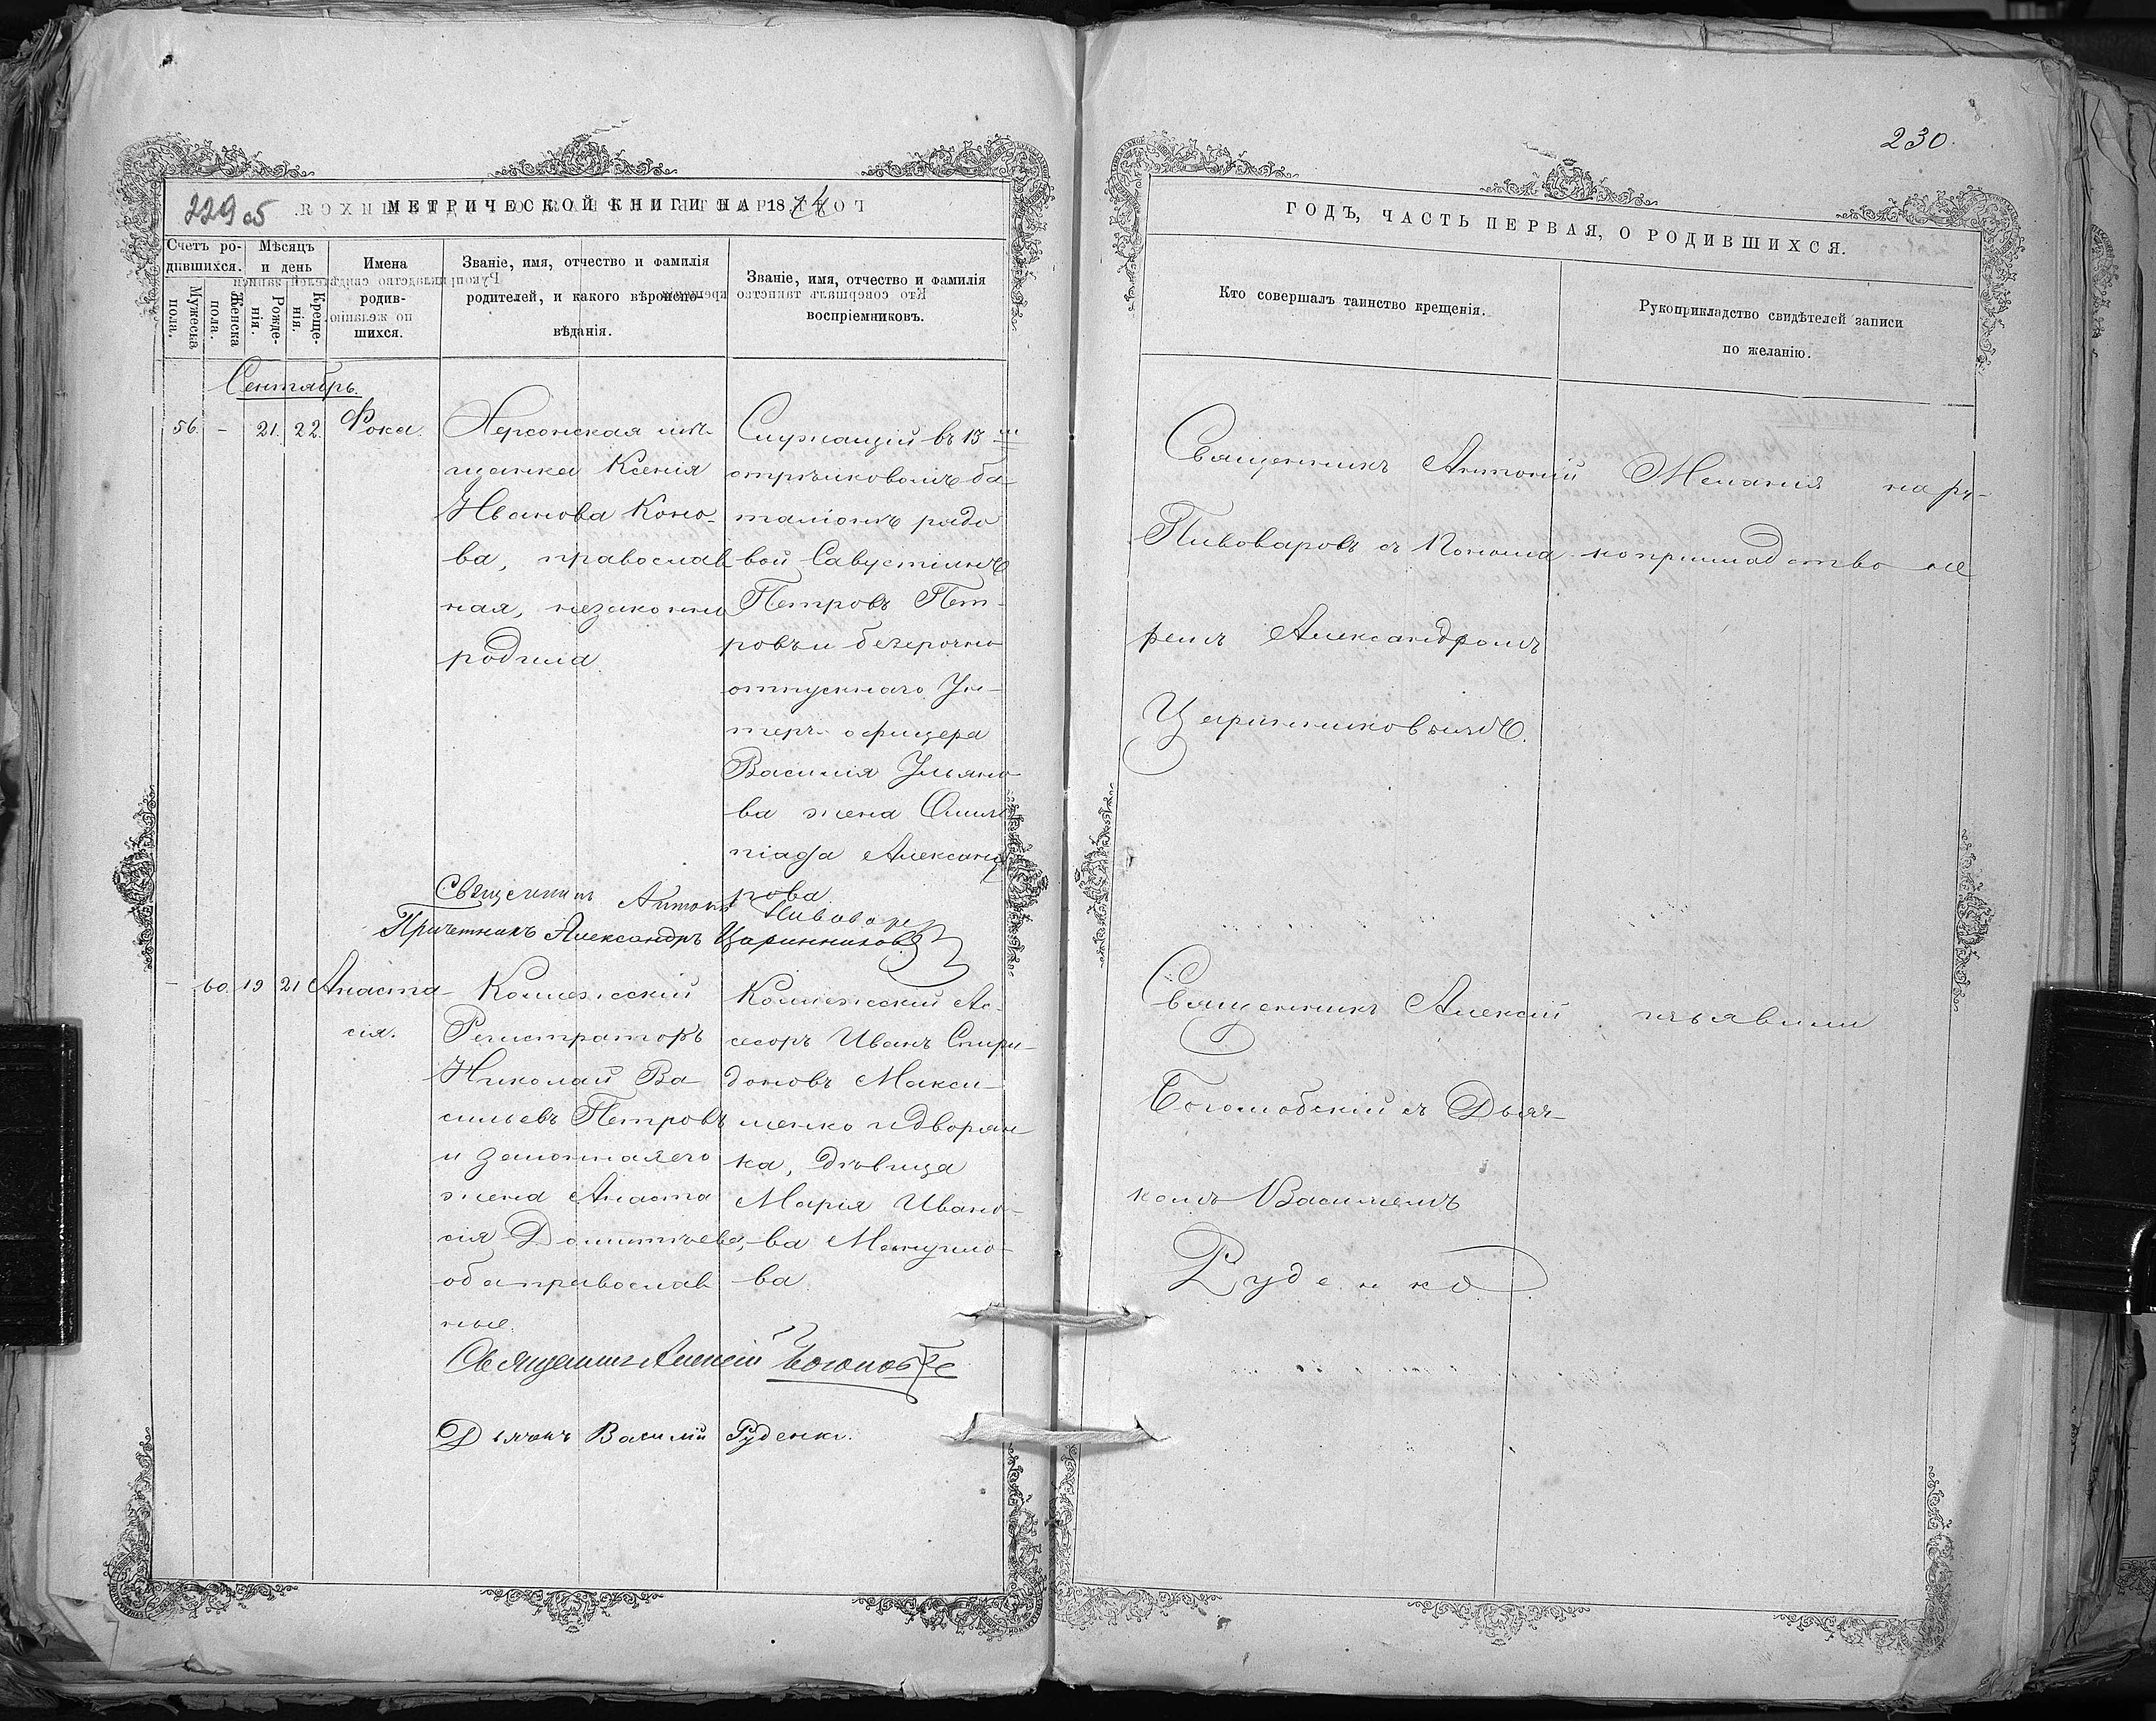 229 об
МЕТРИЧЕСКОЙ КНИГИ НА 1874
Счетъ ро-
дившихся.
Мѣсяцъ
и день
Мужеска
пола.
Женска
пола.
Рожде-
нія.
Креще-
нія.
Имена
родив-
шихся.
Званіе, имя, отчество и фамилія
родителей, и какого вѣроиспо-
вѣданія.
Званіе, имя, отчество и фамилія
воспріемниковъ.
Сентябрь.
56. - 21. 22. Фока.
Херсонская мѣ-
щанка Ксенія
Иванова Коно-
ва, православ
ная, незаконно
родила
Служащій въ 15 м
стрѣлковомъ ба
таліонѣ рядо
вой
Петровъ Пет-
ровъ и безсрочно
отпускнаго Ун-
теръ-офицера
Василія Ульяно-
ва жена Олим
піада Александ
рова
Священникъ Антоній Пивовар
Причетникъ Александръ Царинниковъ
- 60. 19 21 Анаста-
сія.
Коллежскій
Регистраторъ
Николай Ва-
сильевъ Петровъ
и законная его
жена Анаста
сія
оба православ
ные.
Коллежскій Ас-
сесоръ Иванъ Спири-
доновъ Макси-
менко и дворян
ка, дѣвица
Марія Ивано-
ва
ва.
Священникъ Алексій
Дьячокъ Василій Руденко.
230.
ГОДЪ, ЧАСТЬ ПЕРВАЯ, О РОДИВШИХСЯ.
Кто совершалъ таинство крещенія.
Рукоприкладство свидѣтелей записи
по желанію.
Священникъ Антоній
Пивоваровъ съ Понома
ремъ Александромъ
Царинниковымъ.
Желанія на ру-
коприкладство не
изъявили
Священникъ Алексій
Боголюбскій съ Дьяч-
комъ Василіемъ
Руденко